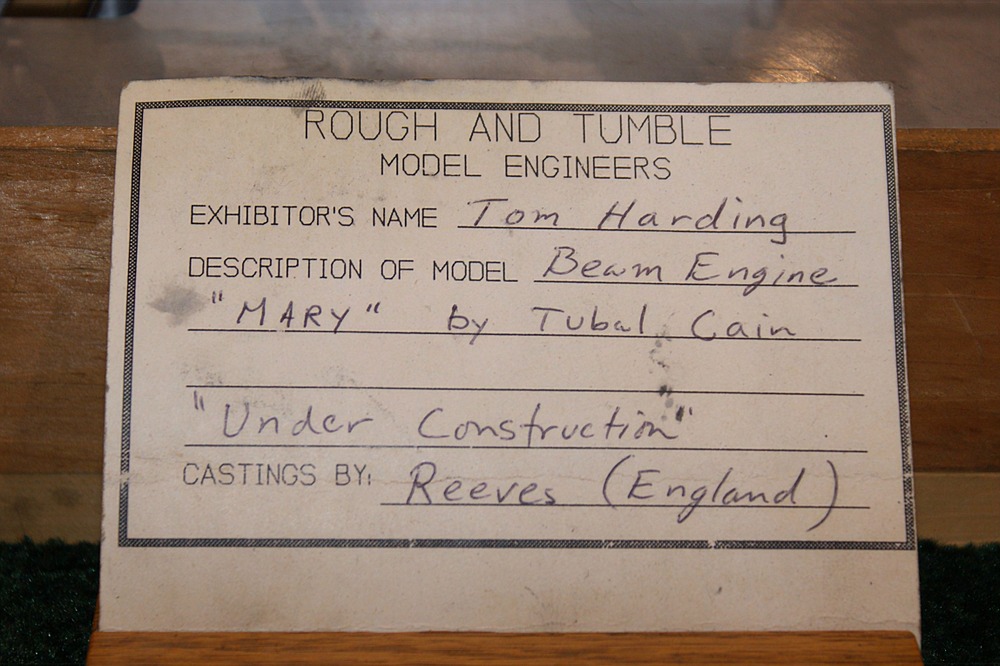 ROUGH AND TUMBLE
MODEL ENGINEERS
EXHIBITOR'S NAME Tom Harding
DESCRIPTION OF MODEL Beam Engine
"MARY" by Tubal Cain
"Under Construction"
CASTINGS BY: Reeves (England)